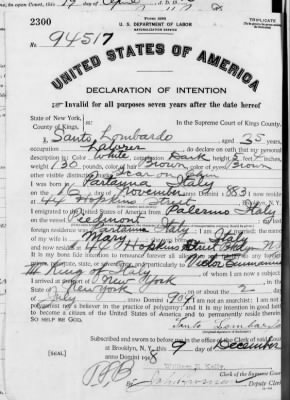 in open Court, this 19 day of April
Form 2203
U. S. DEPARTMENT OF LABOR
NATURALIZATION SERVICE
TRIPLICATE
2300
No. 94517
UNITED STATES OF AMERICA
DECLARATION OF INTENTION
Invalid for all purposes seven years after the date hereof
State of New York,
County of Kings,
In the Supreme Court of Kings County.
I, Santo Lombardo, aged 35 years,
occupation Laborer, do declare on oath that my personal
description is: Color White, complexion Dark, height 5 feet 4 inches,
weight 130 pounds, color of hair Brown, color of eyes Brown
other visible distinctive marks Scar on chin
I was born in Partanna Italy
on the day of November, anno Domini 1 883; I now reside
at 44 Hopkins Street, Brooklyn, N.Y.
I emigrated to the United States of America from Palermo Italy
on the vessel Piedmont; my last
foreign residence was Partanna Italy
wife is Mary; Italy
and now resides at 44 Hopkins Street Bklyn N.Y.
It is my bona fide intention to renounce forever all allegiance and fidelity to any foreign
prince, potentate, state, or sovereignty, and particularly to Victor Emmanuel
III King of Italy, of whom I am now a subject
I arrived at the port of New York, in the
State of New York, on or about the 2 day
of July, anno Domini 1 904; I am not an anarchist; I am not a
polygamist nor a believer in the practice of polygamy; and it is my intention in good faith
to become a citizen of the United States of America and to permanently reside therein:
SO HELP ME GOD.
Santo Lombardo
Subscribed and sworn to before me in the office of the Clerk of said Court
at Brooklyn, N. Y., this 9 day of December
anno Domini 191 8
[SEAL]
William F. Kelly
Clerk of the Supreme Court
Deputy Clerk